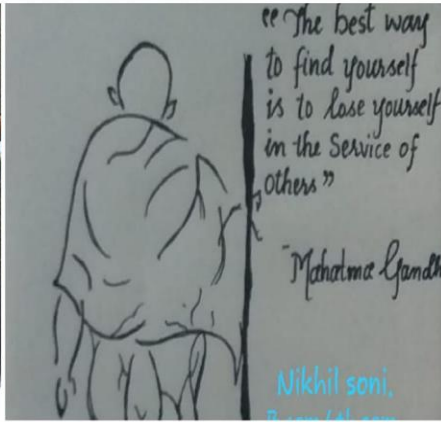 “The best way
to find yourself
is to lose yourself
in the Service of
others”
- Mahatma Gandh
Nikhil soni.